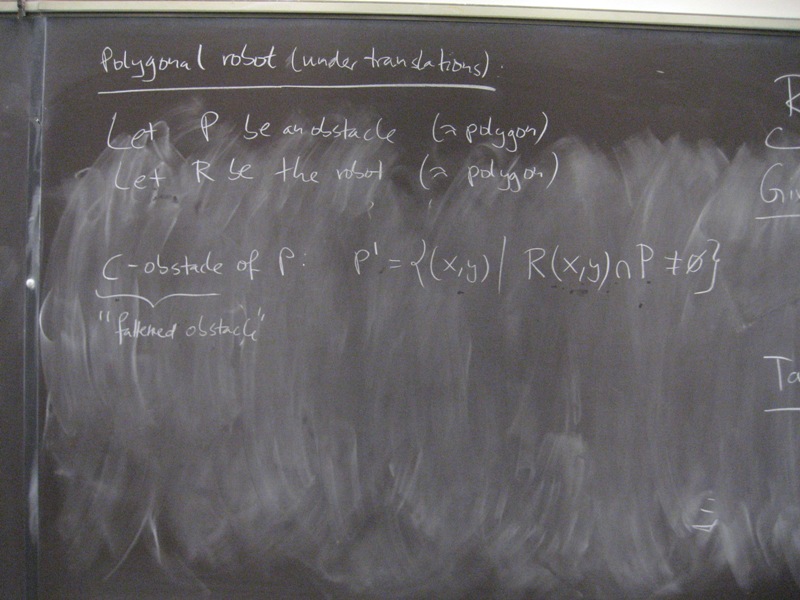 Polygonal robot (under translations):
Let P be an obstacle (a polygon)
Let R be the robot (a polygon)
C-obstacle of P: P' = {(x,y) | R(x,y) ∩ P ≠ ∅}
"fattened obstacle"
R
C
Ta